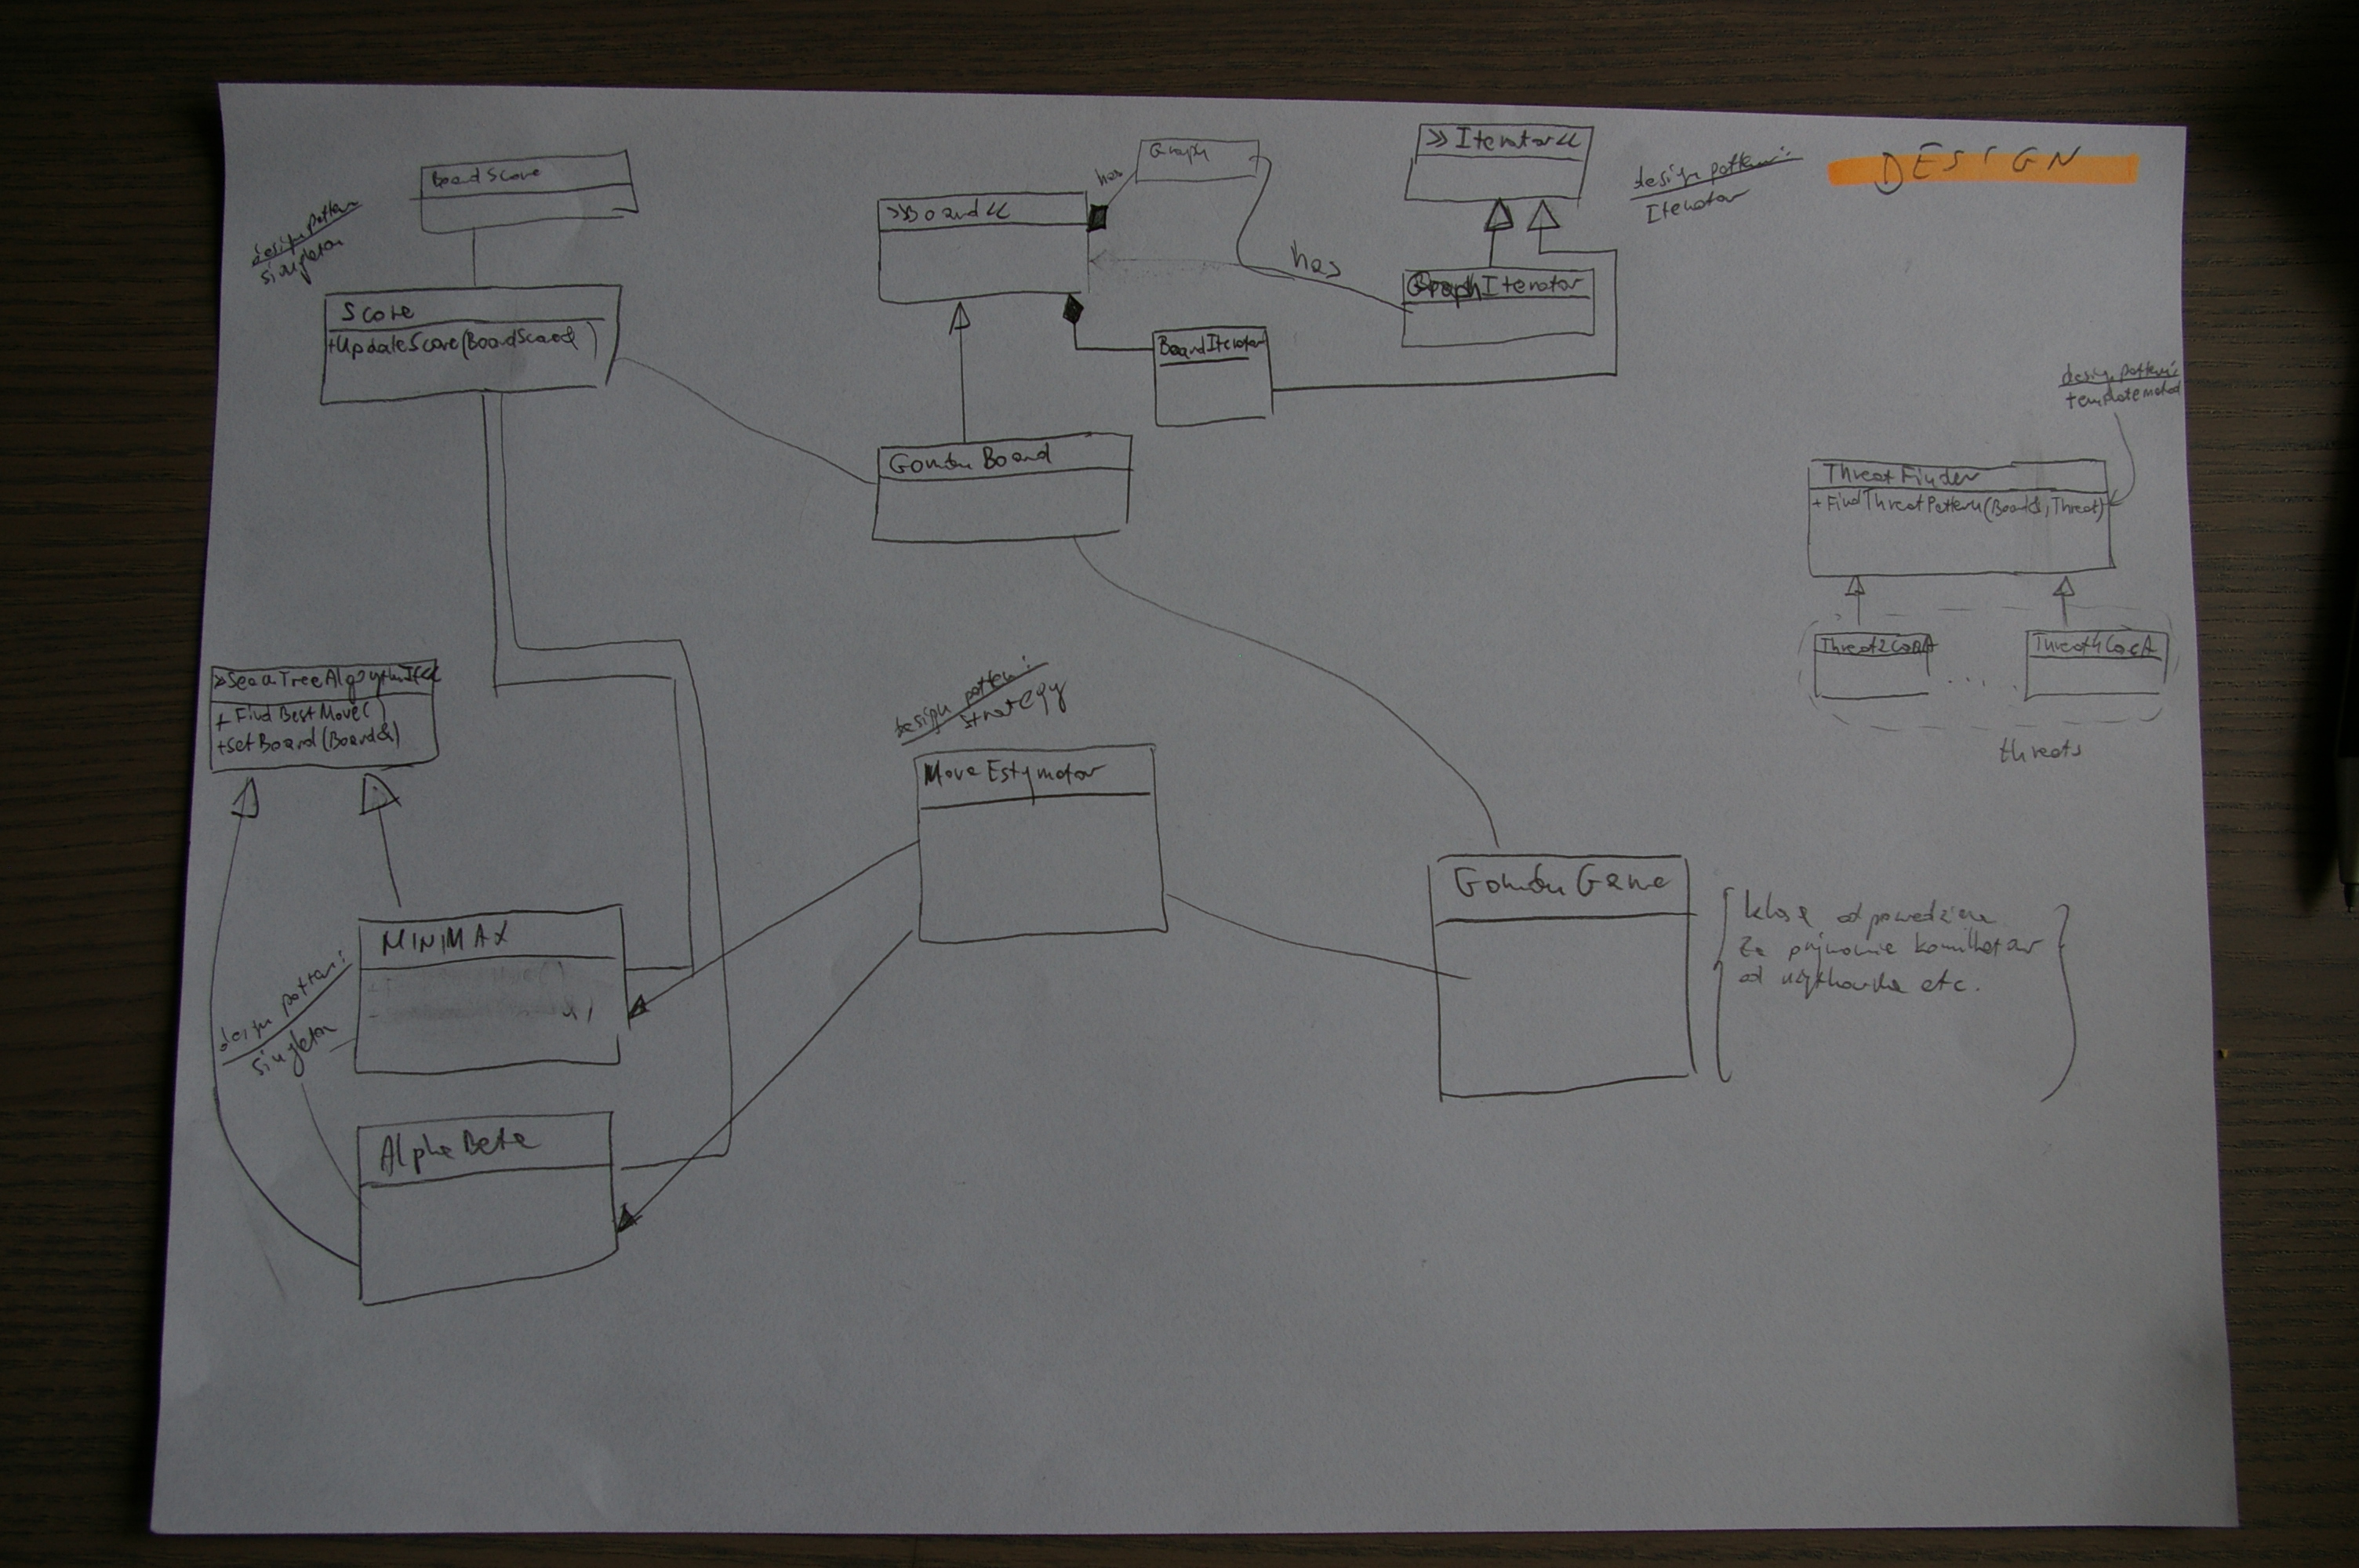 DESIGN
BoardScore
design pattern
singleton
Score
+UpdateScore(BoardScore& )
>>Board<<
has
Graph
>>Iterator<<
design pattern:
Iterator
has
GraphIterator
BoardIterator
GomokuBoard
design pattern:
template method
ThreatFinder
+ FindThreatPattern(Board&, Threat)
Threat2CaseA
....
Threat4CaseA
threats
+ FindBestMove( )
+setBoard(Board&)
design pattern:
strategy
MoveEstymator
GomokuGame
klasa odpowiedzialna
za przyjmowanie komunikatów
od użytkownika etc.
MINIMAX
design pattern:
singleton
AlphaBeta